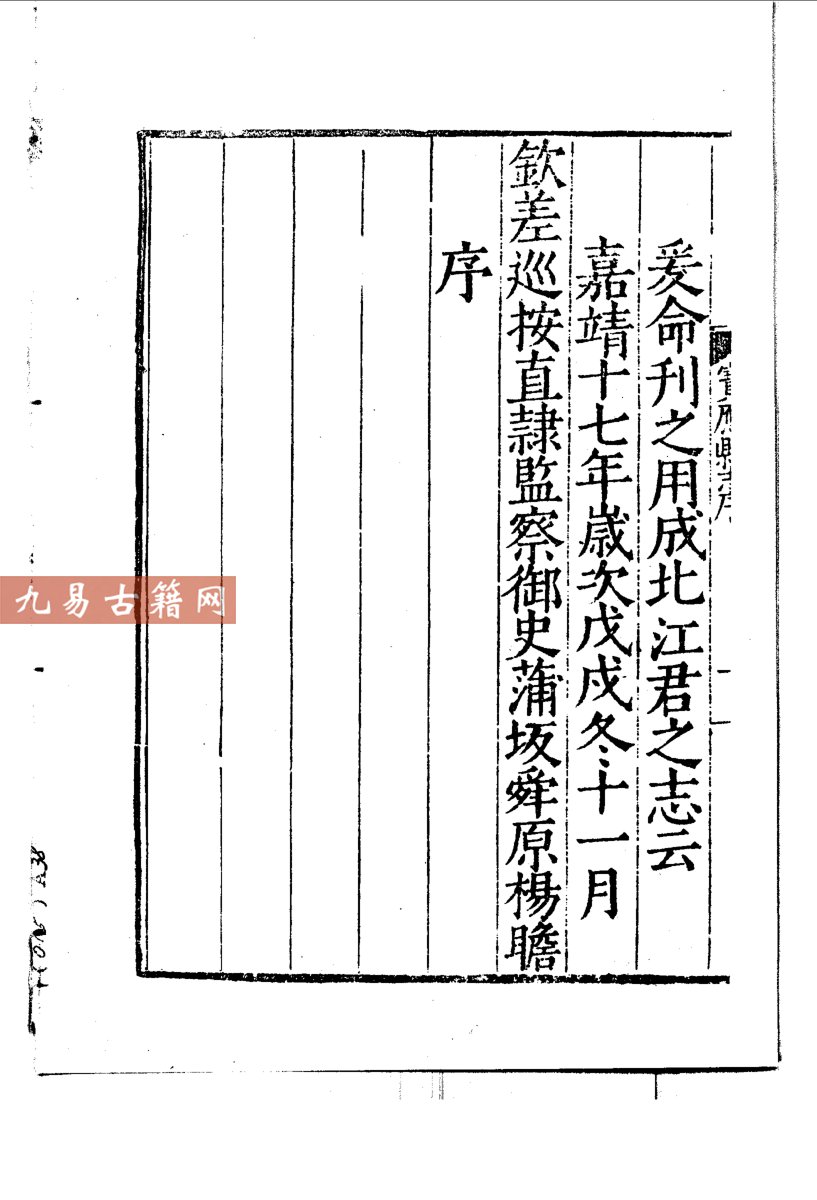 爰命刊之用成北江君之志云
嘉靖十七年歲次戊戌冬十一月
欽差巡按直隸監察御史蒲坂舜原楊瞻
序
九易古籍网